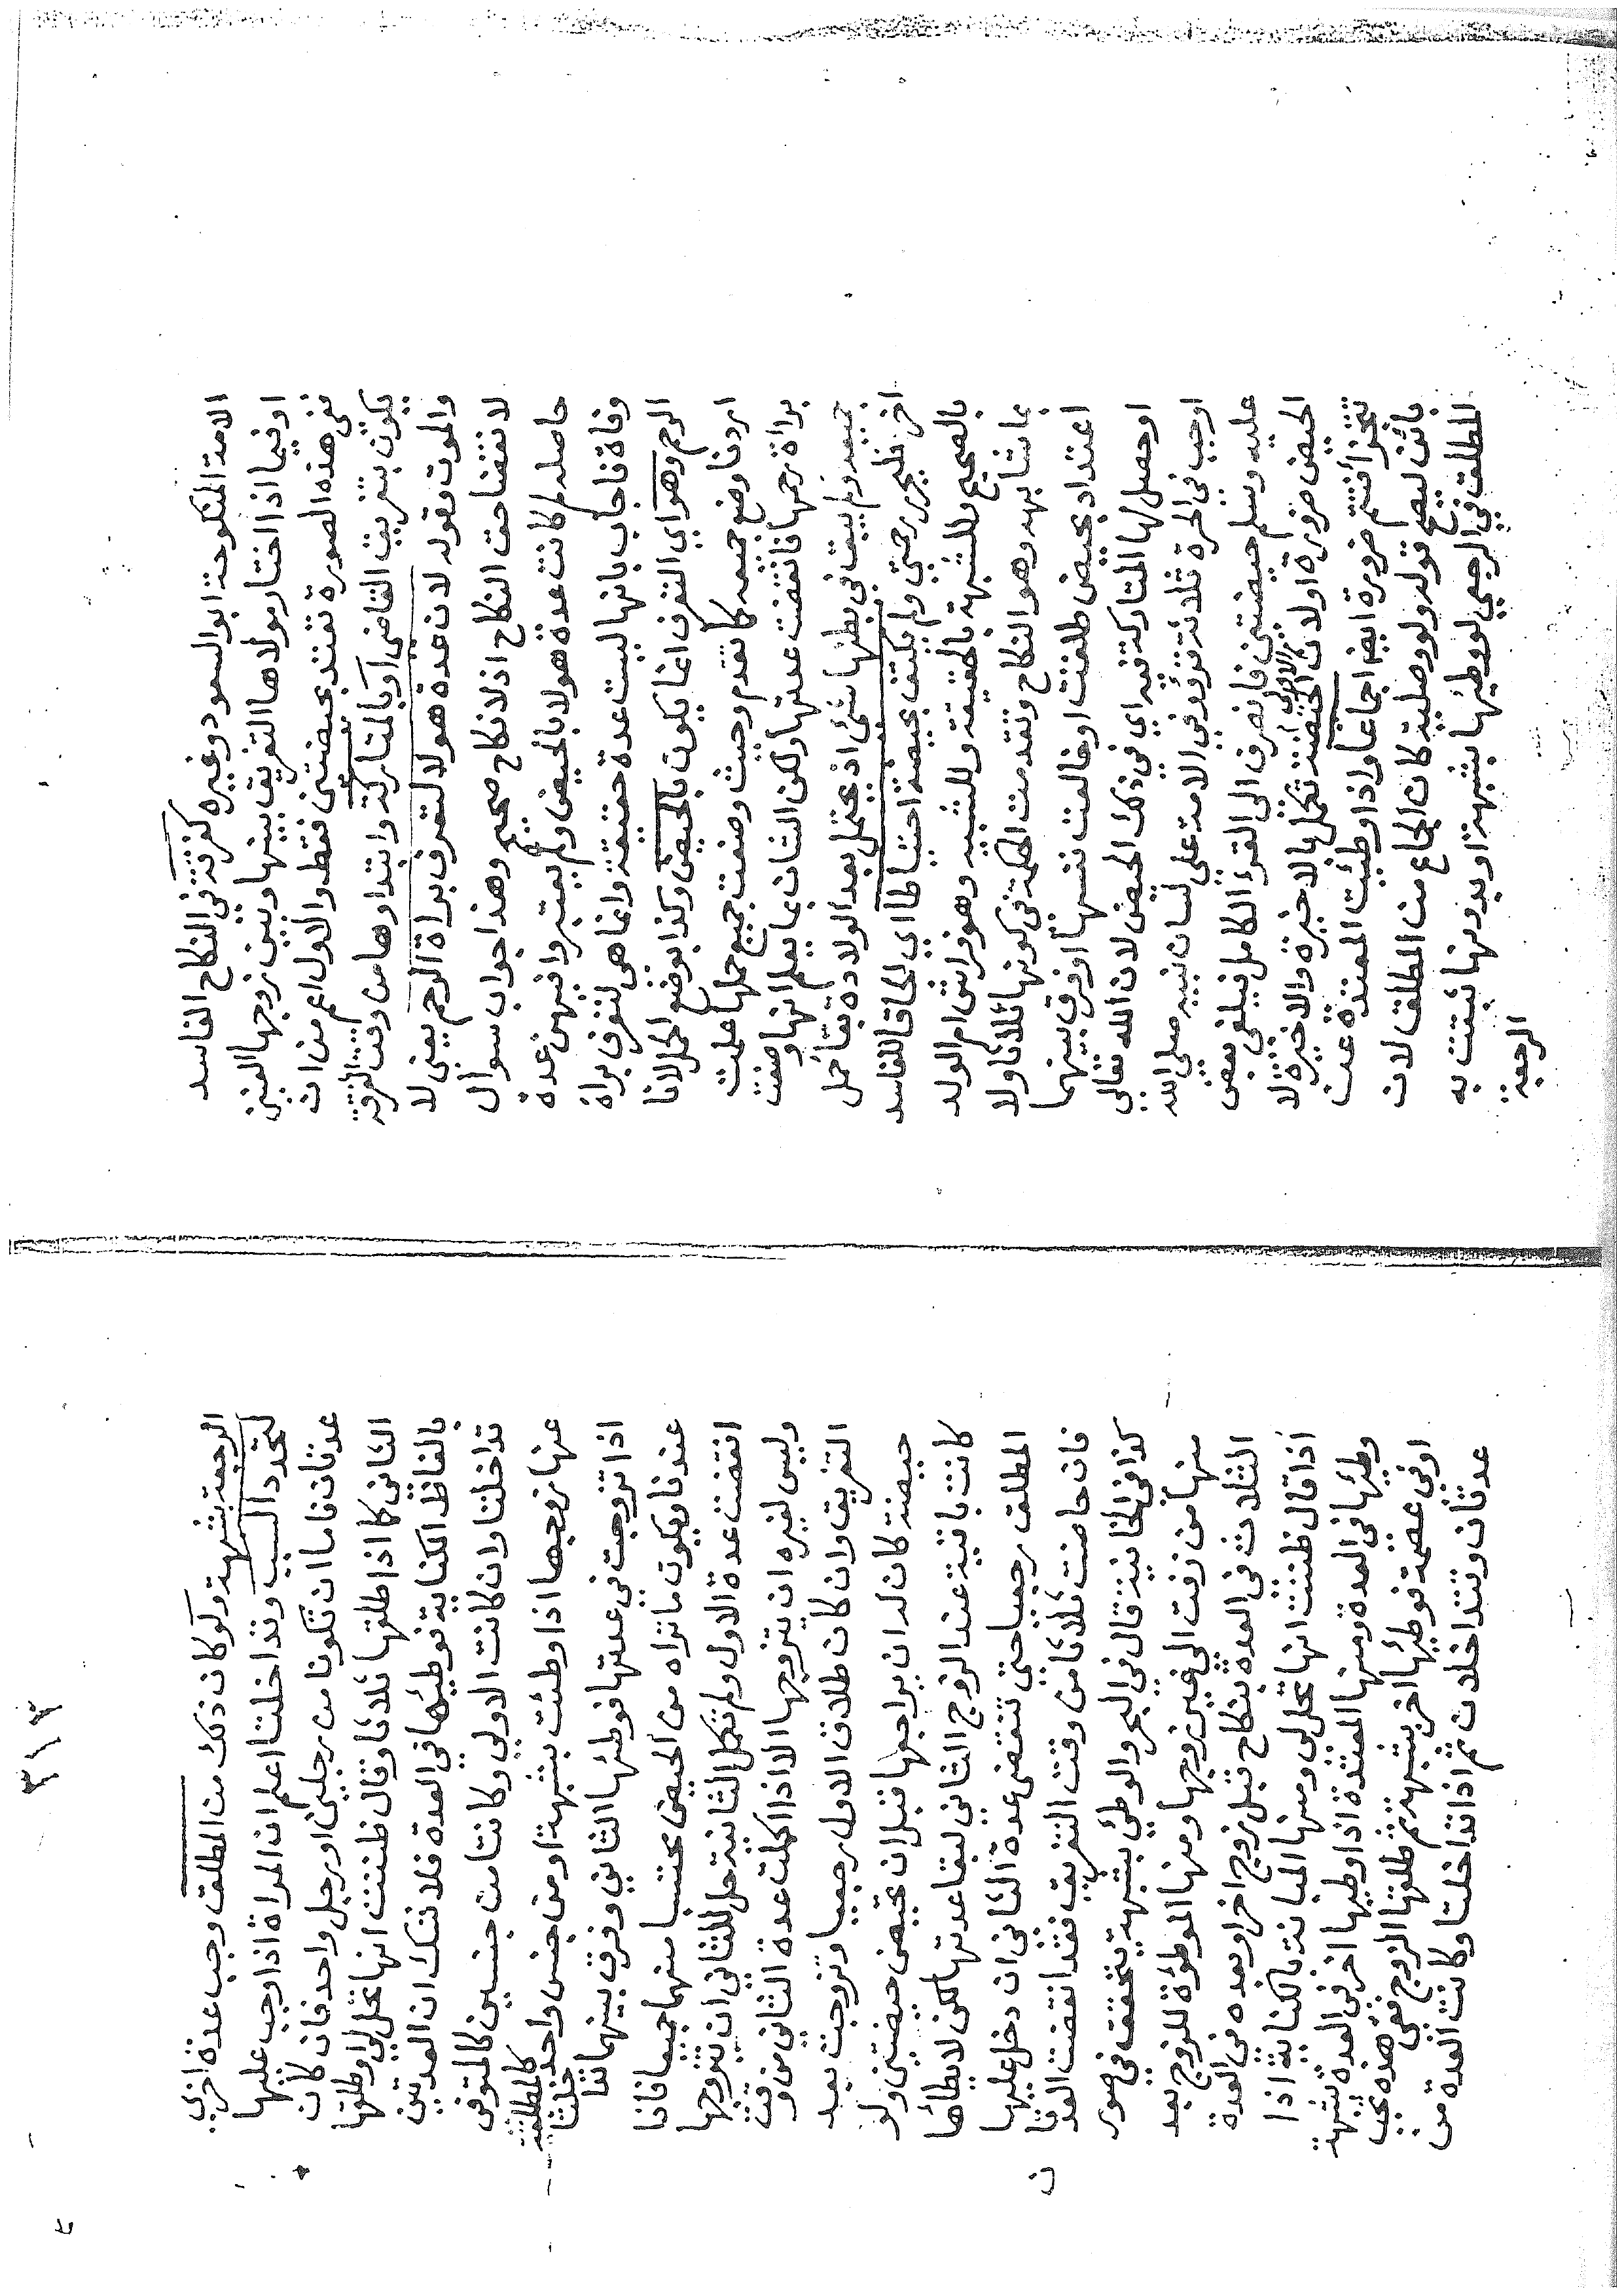 الامة المنكوحة ابو السعود وغيره كفرقة في النكاح الفاسد
او فيما اذا اختار مولاها التفريق بينها وبين زوجها العنين
ففي هذه الصورة تعتد بحيضتين فقط والاول اعم من ان
يكون بتفريق القاضي او بالمتاركة وابتداوها من وقت الفرقة
والموت وقوله لان عدة هولا لتعرف براة الرحم يعني لا
لا نقضا حق النكاح اذ لا نكاح صحيح وهذا جواب سوال
حاصله لم كانت عدة هولا بالحيض ولم يعتبروا فيهن عدة
وفاة فاجاب بانها ليست عدة حقيقة وانما هي لتعرف براة
الرحم وهو اي التعرف انما يكون بالحيض وكذا بوضع الحمل لانا
اردنا وضع جميعه كما تقدم وحيث وضعت جميع حملها علمت
براة رحمها فانقضت عدتها ولكن الشان بما يعلم انها وضعت
جميعه ولم يبق في بطنها شئ اذ يحتمل بعد الولادة بقا حمل
اخر فليحرر رحمتي ولم يكتف بحيضة احتياطا اي الحاقا للفاسد
بالصحيح للشبهة بالحقيقة وللشبيه وهو فراش ام الولد
بما شابهه وهو النكاح وتقدمت الحكمة في كونها ثلاثا ولا
اعتداد بحيض طلقت او خالعت نفسها او فرق بينهما
او حصل لها المتاركة فيه اي في ذلك الحيض لان الله تعالى
اوجب في الحرة ثلاثة قروء وفي الامة على لسان نبيه صلى الله
عليه وسلم حيضتين فانصرف الى القرء الكامل فيلغى بعض
الحيض ضرورة اولان الحيضة الاولى تكمل بالاخيرة والاخيرة لا
تتجزأ فتتم ضرورة ايضا اجماعا واذا وطئت المعتدة عن
بائن ليصح قوله ولو وصلية كان الجماع من المطلق لان
المطلق في الرجعي لو وطئها بشبهة او بدونها يثبت به
الرجعة
الرجعة بشبهة ولو كان ذلك من المطلق وجب عدة اخري
لتجدد السبب وتداخلتا اعلم ان المراة اذا وجب عليها
عدتان فاما ان تكونا من رجلين او رجل واحد فان كان
الثاني كما اذا طلقها ثلاثا وقال ظننت انها تحل لي او طلقها
بالفاظ الكناية فوطيئها في العدة فلا شك ان العدتين
تداخلتا وان كانت الاولي وكانتا من جنسين كالمتوفى
عنها زوجها اذا وطئت بشبهة او من جنس واحد كالمطلقة
اذا تزوجت في عدتها فوطئها الثاني وفرق بينهما تداخلتا
عندنا ويكون ما تراه من الحيض محتسبا منهما جميعا فاذا
انقضت عدة الاول ولم تكمل الثانية حل للثاني ان يتزوجها
وليس لغيره ان يتزوجها الا اذا اكملت عدة الثاني من وقت
التفريق وان كان طلاق الاول رجعيا وتزوجت بعد
حيضة كان له ان يراجعها قبل ان تحيض حيضتين ولو
كانت بائنة عند الزوج الثاني لبقا عدتها لكن لا يطاها
المطلق رجعيا حتى تنقضي عدة الثاني ان دخل عليها
فان حاضت ثلاثا من وقت التفريق فقد انقضت العدتان
كذا في الخانية قال في البحر والوطئ بشبهة يتحقق في صور
منها من زفت الى غير زوجها ومنها الموطؤة للزوج بعد
الثلاث في العدة بنكاح قبل زوج اخر او بعده في العدة
اذا قال ظننت انها تحل لي ومنها المبانة بالكناية اذا
وطيئها في العدة ومنها المعتدة اذا وطيها اخر في العدة بشبهة
او في عصمة فوطيئها اخر بشبهة ثم طلقها الزوج ففي هذه تجب
عدتان وتتداخلان ثم اذا تداخلتا وكانت العدة من
٣١٣